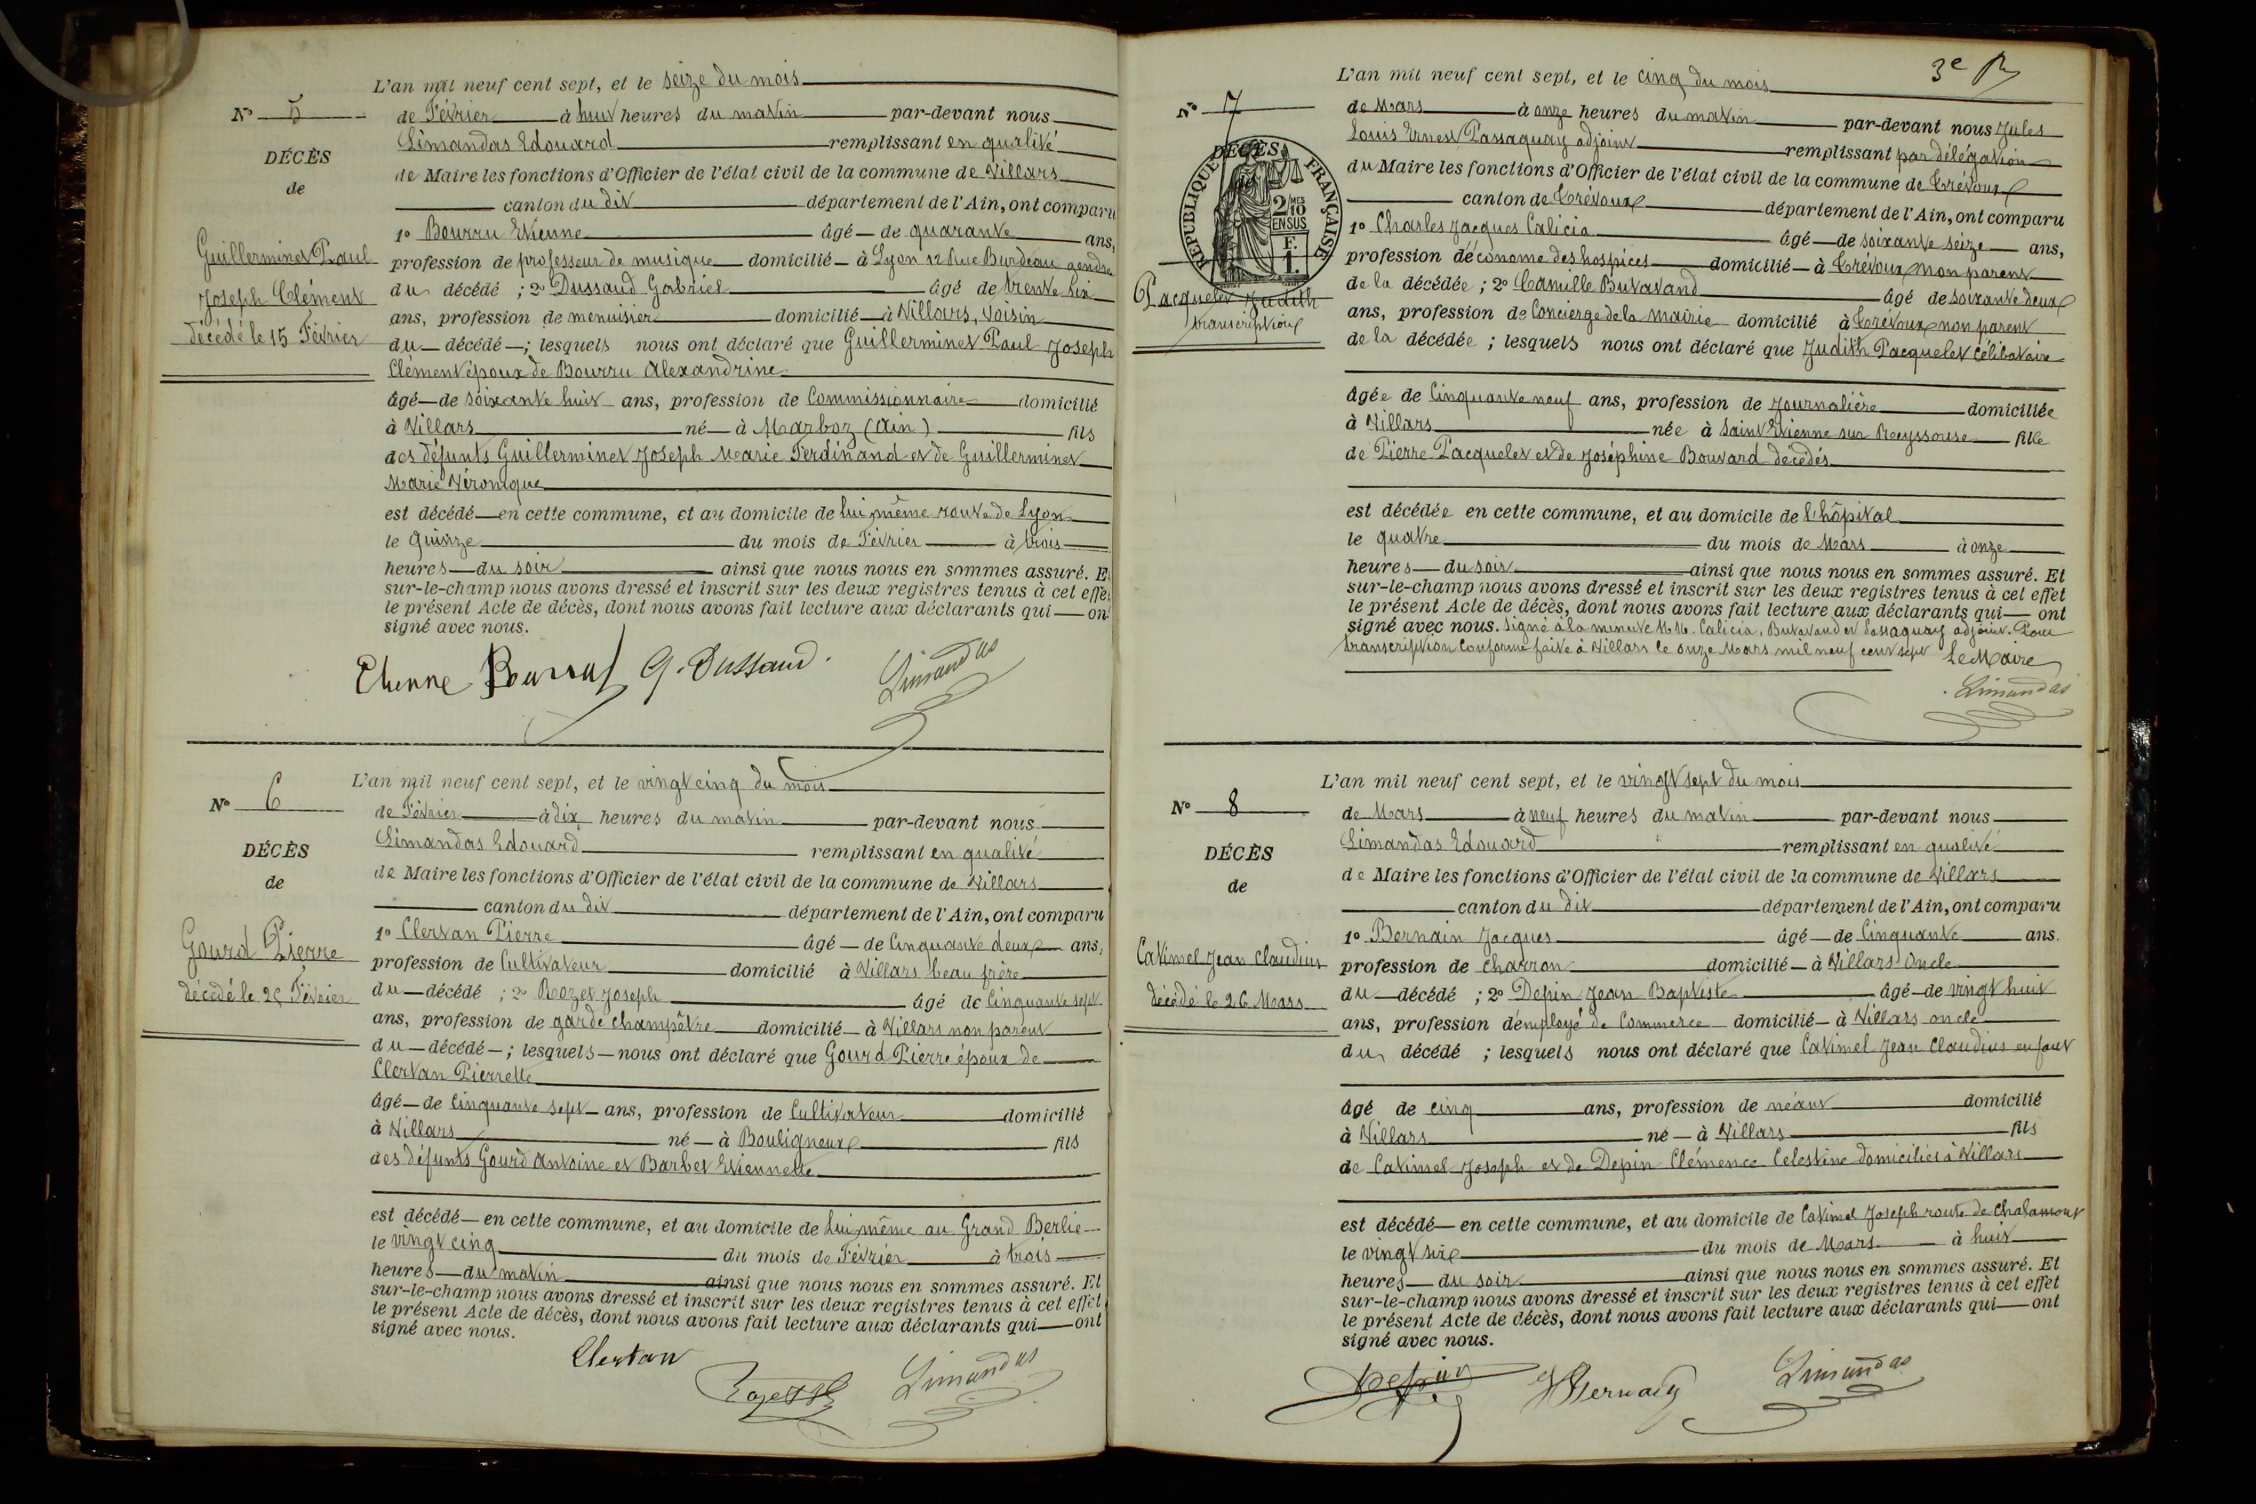 L'an mil neuf cent sept, et le seize du mois
N° 5
de Février à huit heures du matin par-devant nous
Limandas Edouard remplissant en qualité
DÉCÈS
de Maire les fonctions d'Officier de l'état civil de la commune de Villars
de
canton du dit département de l'Ain, ont comparu
1° Bourru Etienne âgé de quarante ans,
Guillerminet Paul
profession de professeur de musique domicilié à Lyon 12 Rue Burdeau gendre
Joseph Clément
du décédé ; 2° Dussaud Gabriel âgé de trente six
décédé le 15 Février
ans, profession de menuisier domicilié à Villars, voisin
du décédé ; lesquels nous ont déclaré que Guillerminet Paul Joseph
Clément époux de Bourru Alexandrine
âgé de soixante huit ans, profession de Commissionnaire domicilié
à Villars né à Marboz (Ain) fils
des défunts Guillerminet Joseph Marie Ferdinand et de Guillerminet
Marie Véronique
est décédé en cette commune, et au domicile de lui même route de Lyon
le quinze du mois de Février à trois
heures du soir ainsi que nous nous en sommes assuré. Et
sur-le-champ nous avons dressé et inscrit sur les deux registres tenus à cet effet
le présent Acte de décès, dont nous avons fait lecture aux déclarants qui ont
signé avec nous.
Etienne Bourru G. Dussaud. Limandas
L'an mil neuf cent sept, et le vingt cinq du mois
N° 6
de Février à dix heures du matin par-devant nous
Limandas Edouard remplissant en qualité
DÉCÈS
de Maire les fonctions d'Officier de l'état civil de la commune de Villars
de
canton du dit département de l'Ain, ont comparu
1° Clertan Pierre âgé de Cinquante deux ans,
Gourd Pierre
profession de Cultivateur domicilié à Villars beau frère
décédé le 25 Février
du décédé ; 2° Rozet Joseph âgé de Cinquante sept
ans, profession de garde champêtre domicilié à Villars non parent
du décédé ; lesquels nous ont déclaré que Gourd Pierre époux de
Clertan Pierrette
âgé de Cinquante sept ans, profession de Cultivateur domicilié
à Villars né à Bouligneux fils
des défunts Gourd Antoine et Barbet Etiennette
est décédé en cette commune, et au domicile de Lui même au Grand Berlie
le vingt cinq du mois de Février à trois
heures du matin ainsi que nous nous en sommes assuré. Et
sur-le-champ nous avons dressé et inscrit sur les deux registres tenus à cet effet
le présent Acte de décès, dont nous avons fait lecture aux déclarants qui ont
signé avec nous.
Clertan Rozet Limandas
3e
L'an mil neuf cent sept, et le cinq du mois
N° 7
de Mars à onze heures du matin par-devant nous Jules
Louis Ernest Passaquay adjoint remplissant par délégation
DÉCÈS
RÉPUBLIQUE FRANÇAISE
2 MES 10 EN SUS
F. 1.
du Maire les fonctions d'Officier de l'état civil de la commune de Trévoux
canton de Trévoux département de l'Ain, ont comparu
1° Charles Jacques Calicia âgé de soixante seize ans,
profession d'économe des hospices domicilié à Trévoux non parent
Pacquelet Judith
transcription
de la décédée ; 2° Camille Butavand âgé de soixante deux
ans, profession de Concierge de la mairie domicilié à Trévoux non parent
de la décédée ; lesquels nous ont déclaré que Judith Pacquelet célibataire
âgée de Cinquante neuf ans, profession de Journalière domiciliée
à Villars née à Saint Etienne sur Reyssouse fille
de Pierre Pacquelet et de Joséphine Bouvard décédés
est décédée en cette commune, et au domicile de l'hôpital
le quatre du mois de Mars à onze
heures du soir ainsi que nous nous en sommes assuré. Et
sur-le-champ nous avons dressé et inscrit sur les deux registres tenus à cet effet
le présent Acte de décès, dont nous avons fait lecture aux déclarants qui ont
signé avec nous. Signé à la minute MM. Calicia, Butavand et Passaquay adjoint. Pour
transcription conforme faite à Villars le onze Mars mil neuf cent sept Le Maire
Limandas
L'an mil neuf cent sept, et le vingt sept du mois
N° 8
de Mars à neuf heures du matin par-devant nous
Limandas Edouard remplissant en qualité
DÉCÈS
de Maire les fonctions d'Officier de l'état civil de la commune de Villars
de
canton du dit département de l'Ain, ont comparu
1° Bernain Jacques âgé de Cinquante ans.
Catimel Jean Claudius
profession de charron domicilié à Villars oncle
décédé le 26 Mars
du décédé ; 2° Depin Jean Baptiste âgé de vingt huit
ans, profession d'employé de Commerce domicilié à Villars oncle
du décédé ; lesquels nous ont déclaré que Catimel Jean Claudius enfant
âgé de cinq ans, profession de néant domicilié
à Villars né à Villars fils
de Catimel Joseph et de Depin Clémence Celestine domiciliés à Villars
est décédé en cette commune, et au domicile de Catimel Joseph route de Chalamont
le vingt six du mois de Mars à huit
heures du soir ainsi que nous nous en sommes assuré. Et
sur-le-champ nous avons dressé et inscrit sur les deux registres tenus à cet effet
le présent Acte de décès, dont nous avons fait lecture aux déclarants qui ont
signé avec nous.
Depin Bernain Limandas